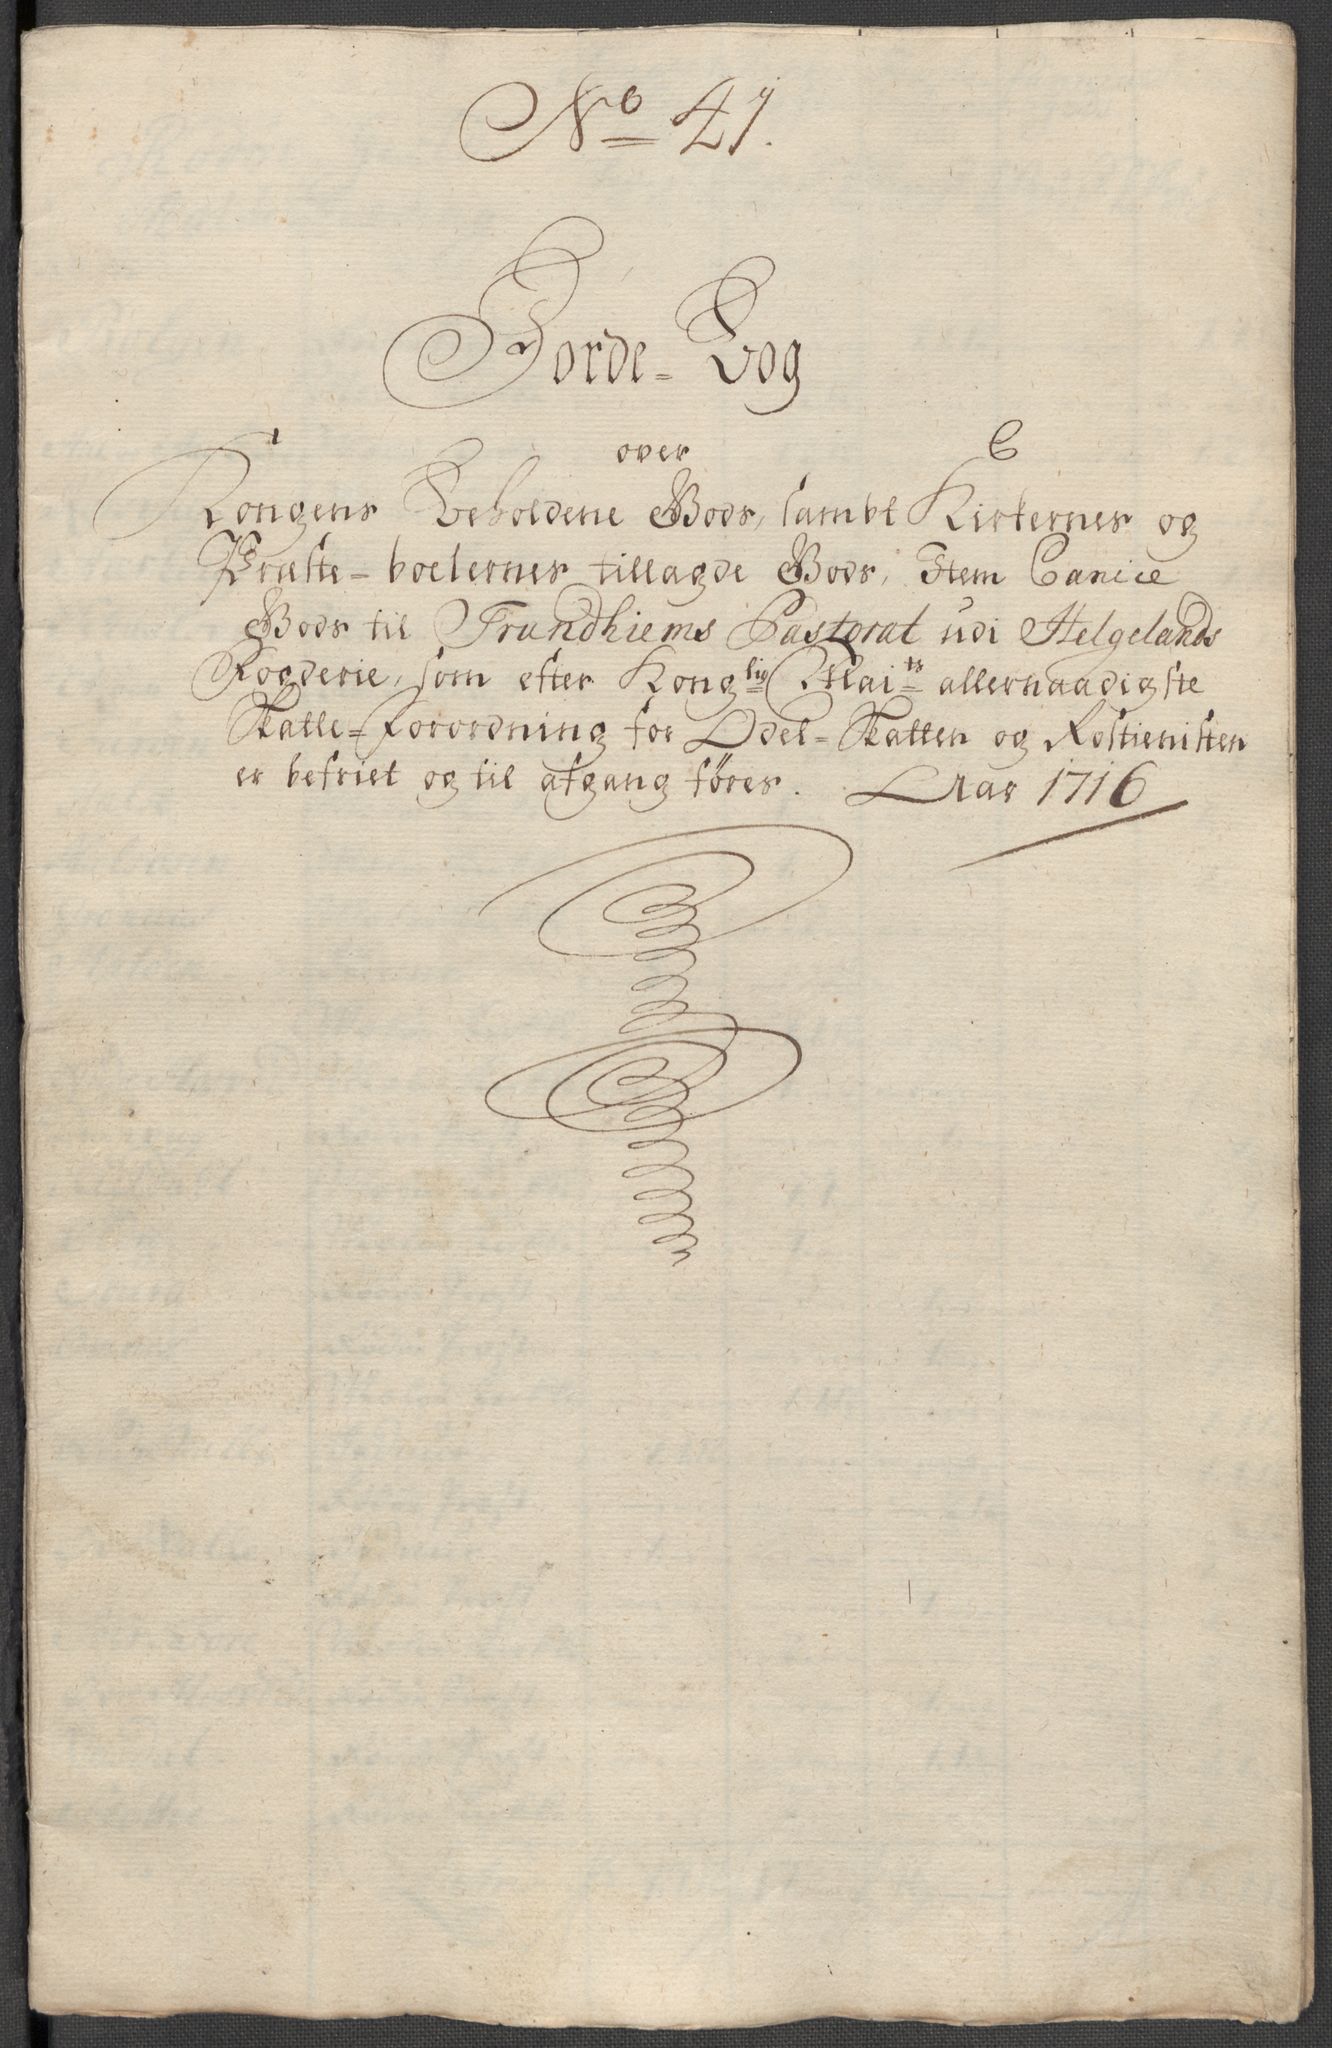 No 41.
Jorde-Bog
over
Kongens Beholdene Gods, sambt Kirkernes og
Præste-boelernes tillagde Gods, Item Canice
Gods til Trundhiems Pastorat udi Helgelands
Fogderie, som efter Konglig Maits allernaadigste
Skatte-Forordning for Odel-Skatten og Rostienisten
er befriet og til afgang føres. Aar 1716